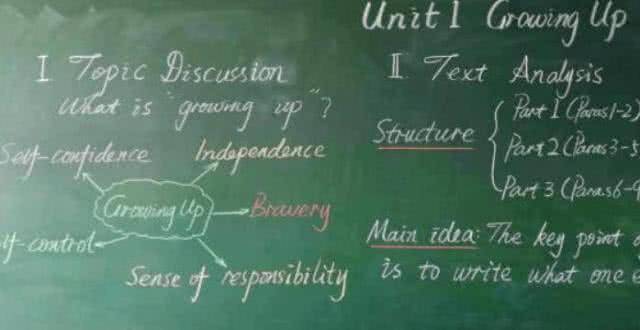 Unit 1 Growing Up
I Topic Discussion
What is "growing up"?
Self-confidence
Independence
Growing Up
Bravery
Sense of responsibility
II Text Analysis
Structure
Part 1 (Paras1-2)
Part 2 (Paras3-5
Part 3 (Paras6-
Main idea: The key point
is to write what one